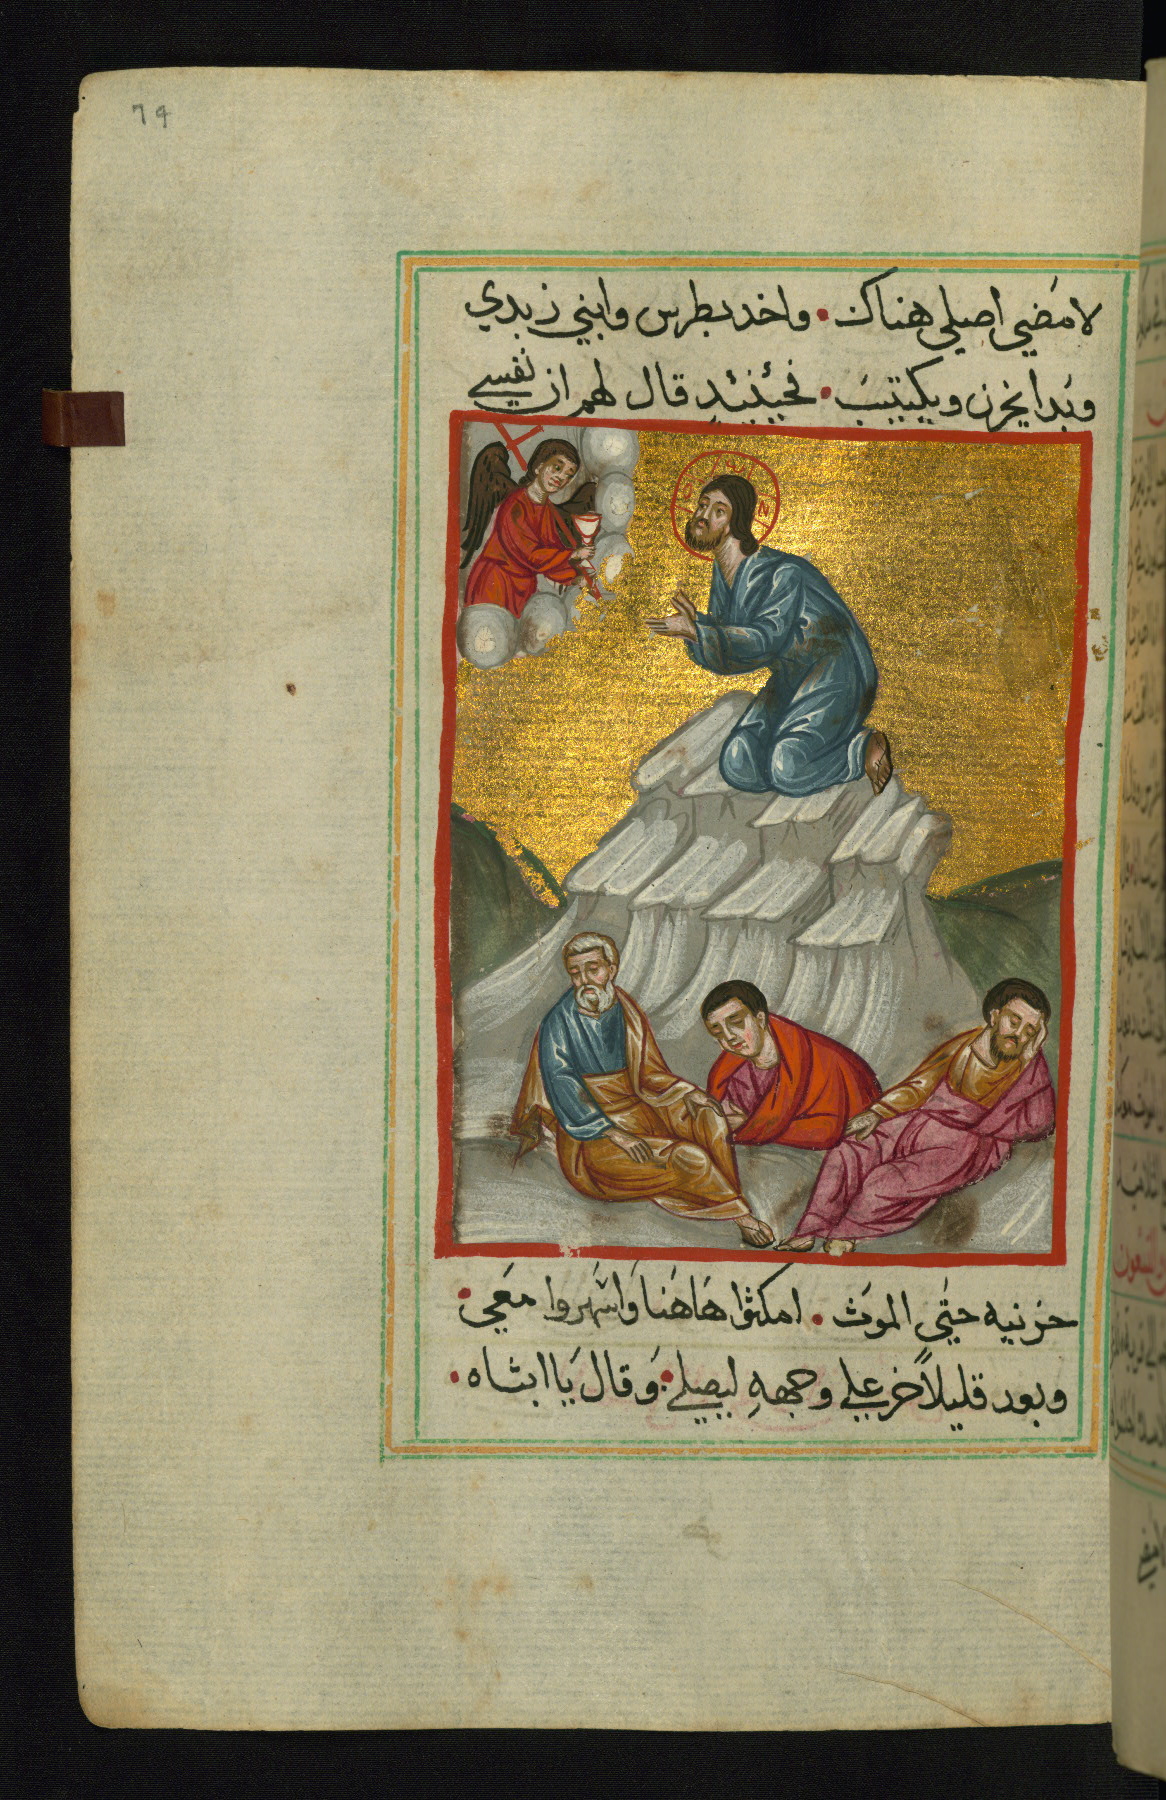 74
لامضي اصلي هناك • واخد بطرس وابني زبدي
وبدا يحزن ويكيتيب • فحئنئدٍ قال لهم ان نفسي
حزنيه حتي الموث • امكثوا هَاهَنا وَاسَهروا معَي •
وبعد قليلاً خر علي وجههِ ليصلي • وَقال يَا ابثاه •